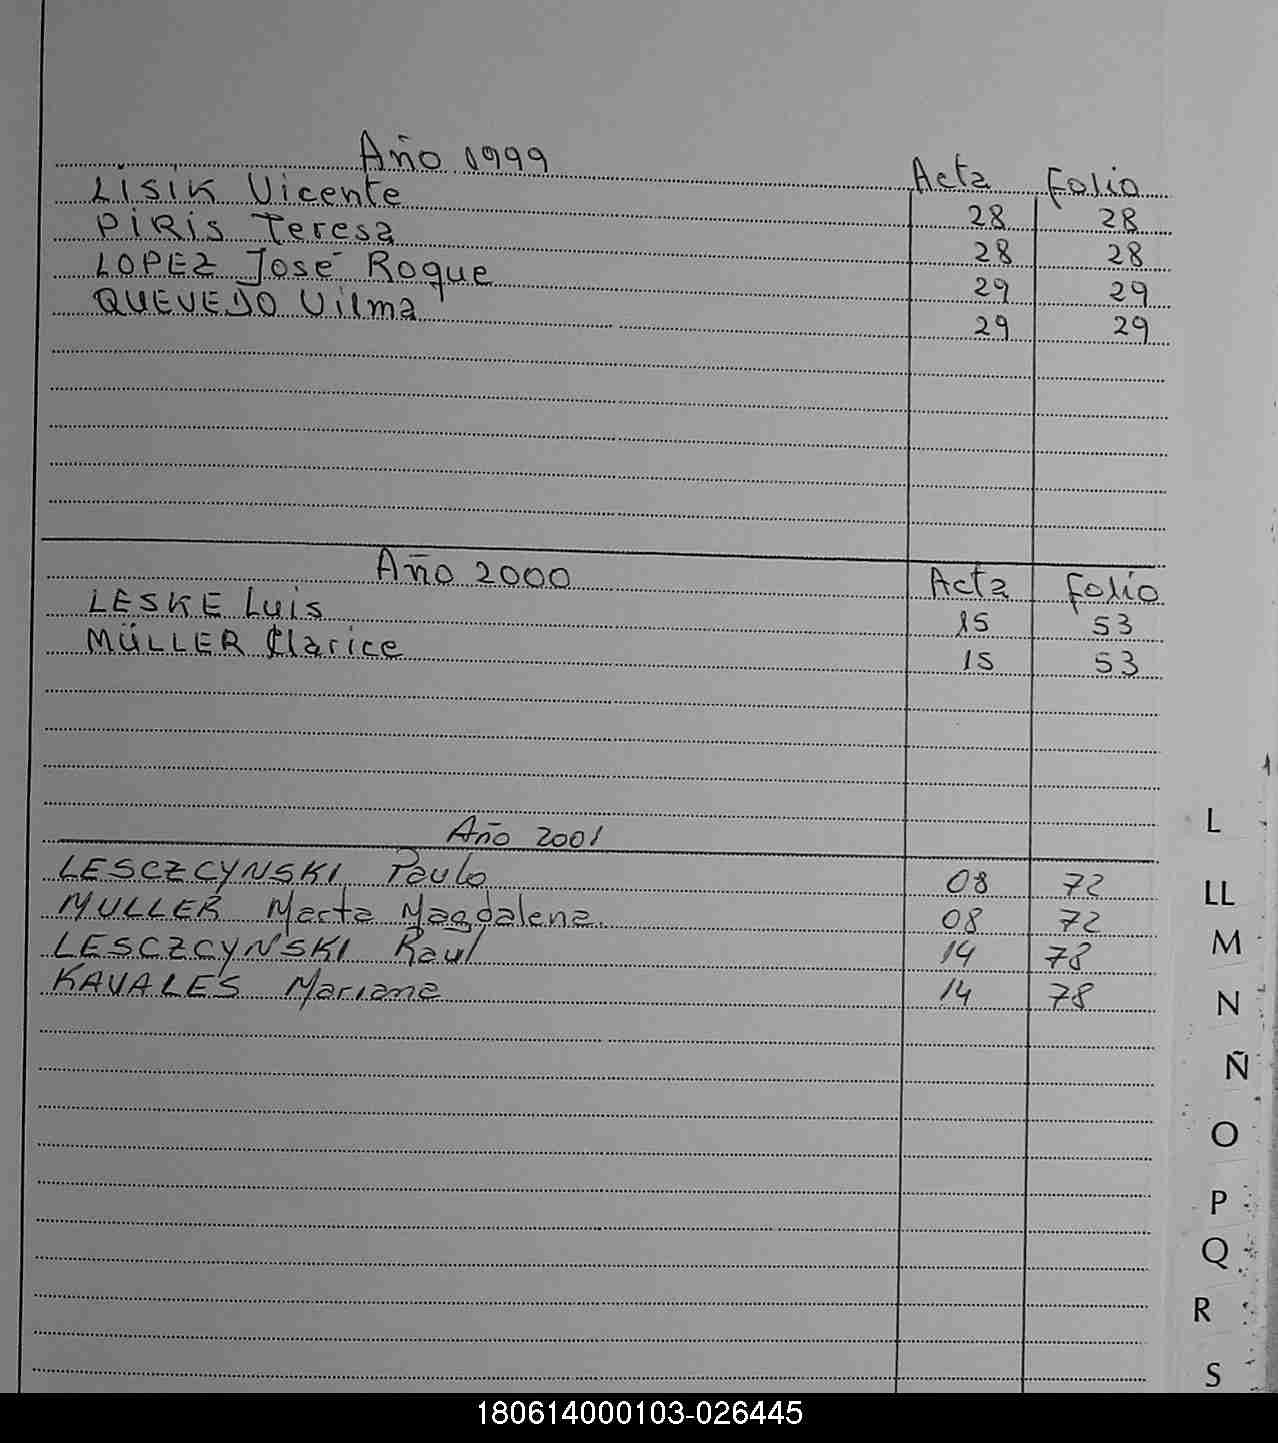 Año 1999 Acta Folio
LISIK Vicente 28 28
PIRIS Teresa 28 28
LOPEZ José Roque 29 29
QUEVEDO Vilma 29 29
Año 2000 Acta Folio
LESKE Luis 15 53
MÜLLER Clarice 15 53
Año 2001
LESCZCYNSKI Paulo 08 72
MULLER Marta Magdalena. 08 72
LESCZCYNSKI Raul 14 78
KAVALES Mariana 14 78
L
LL
M
N
Ñ
O
P
Q
R
S
180614000103-026445